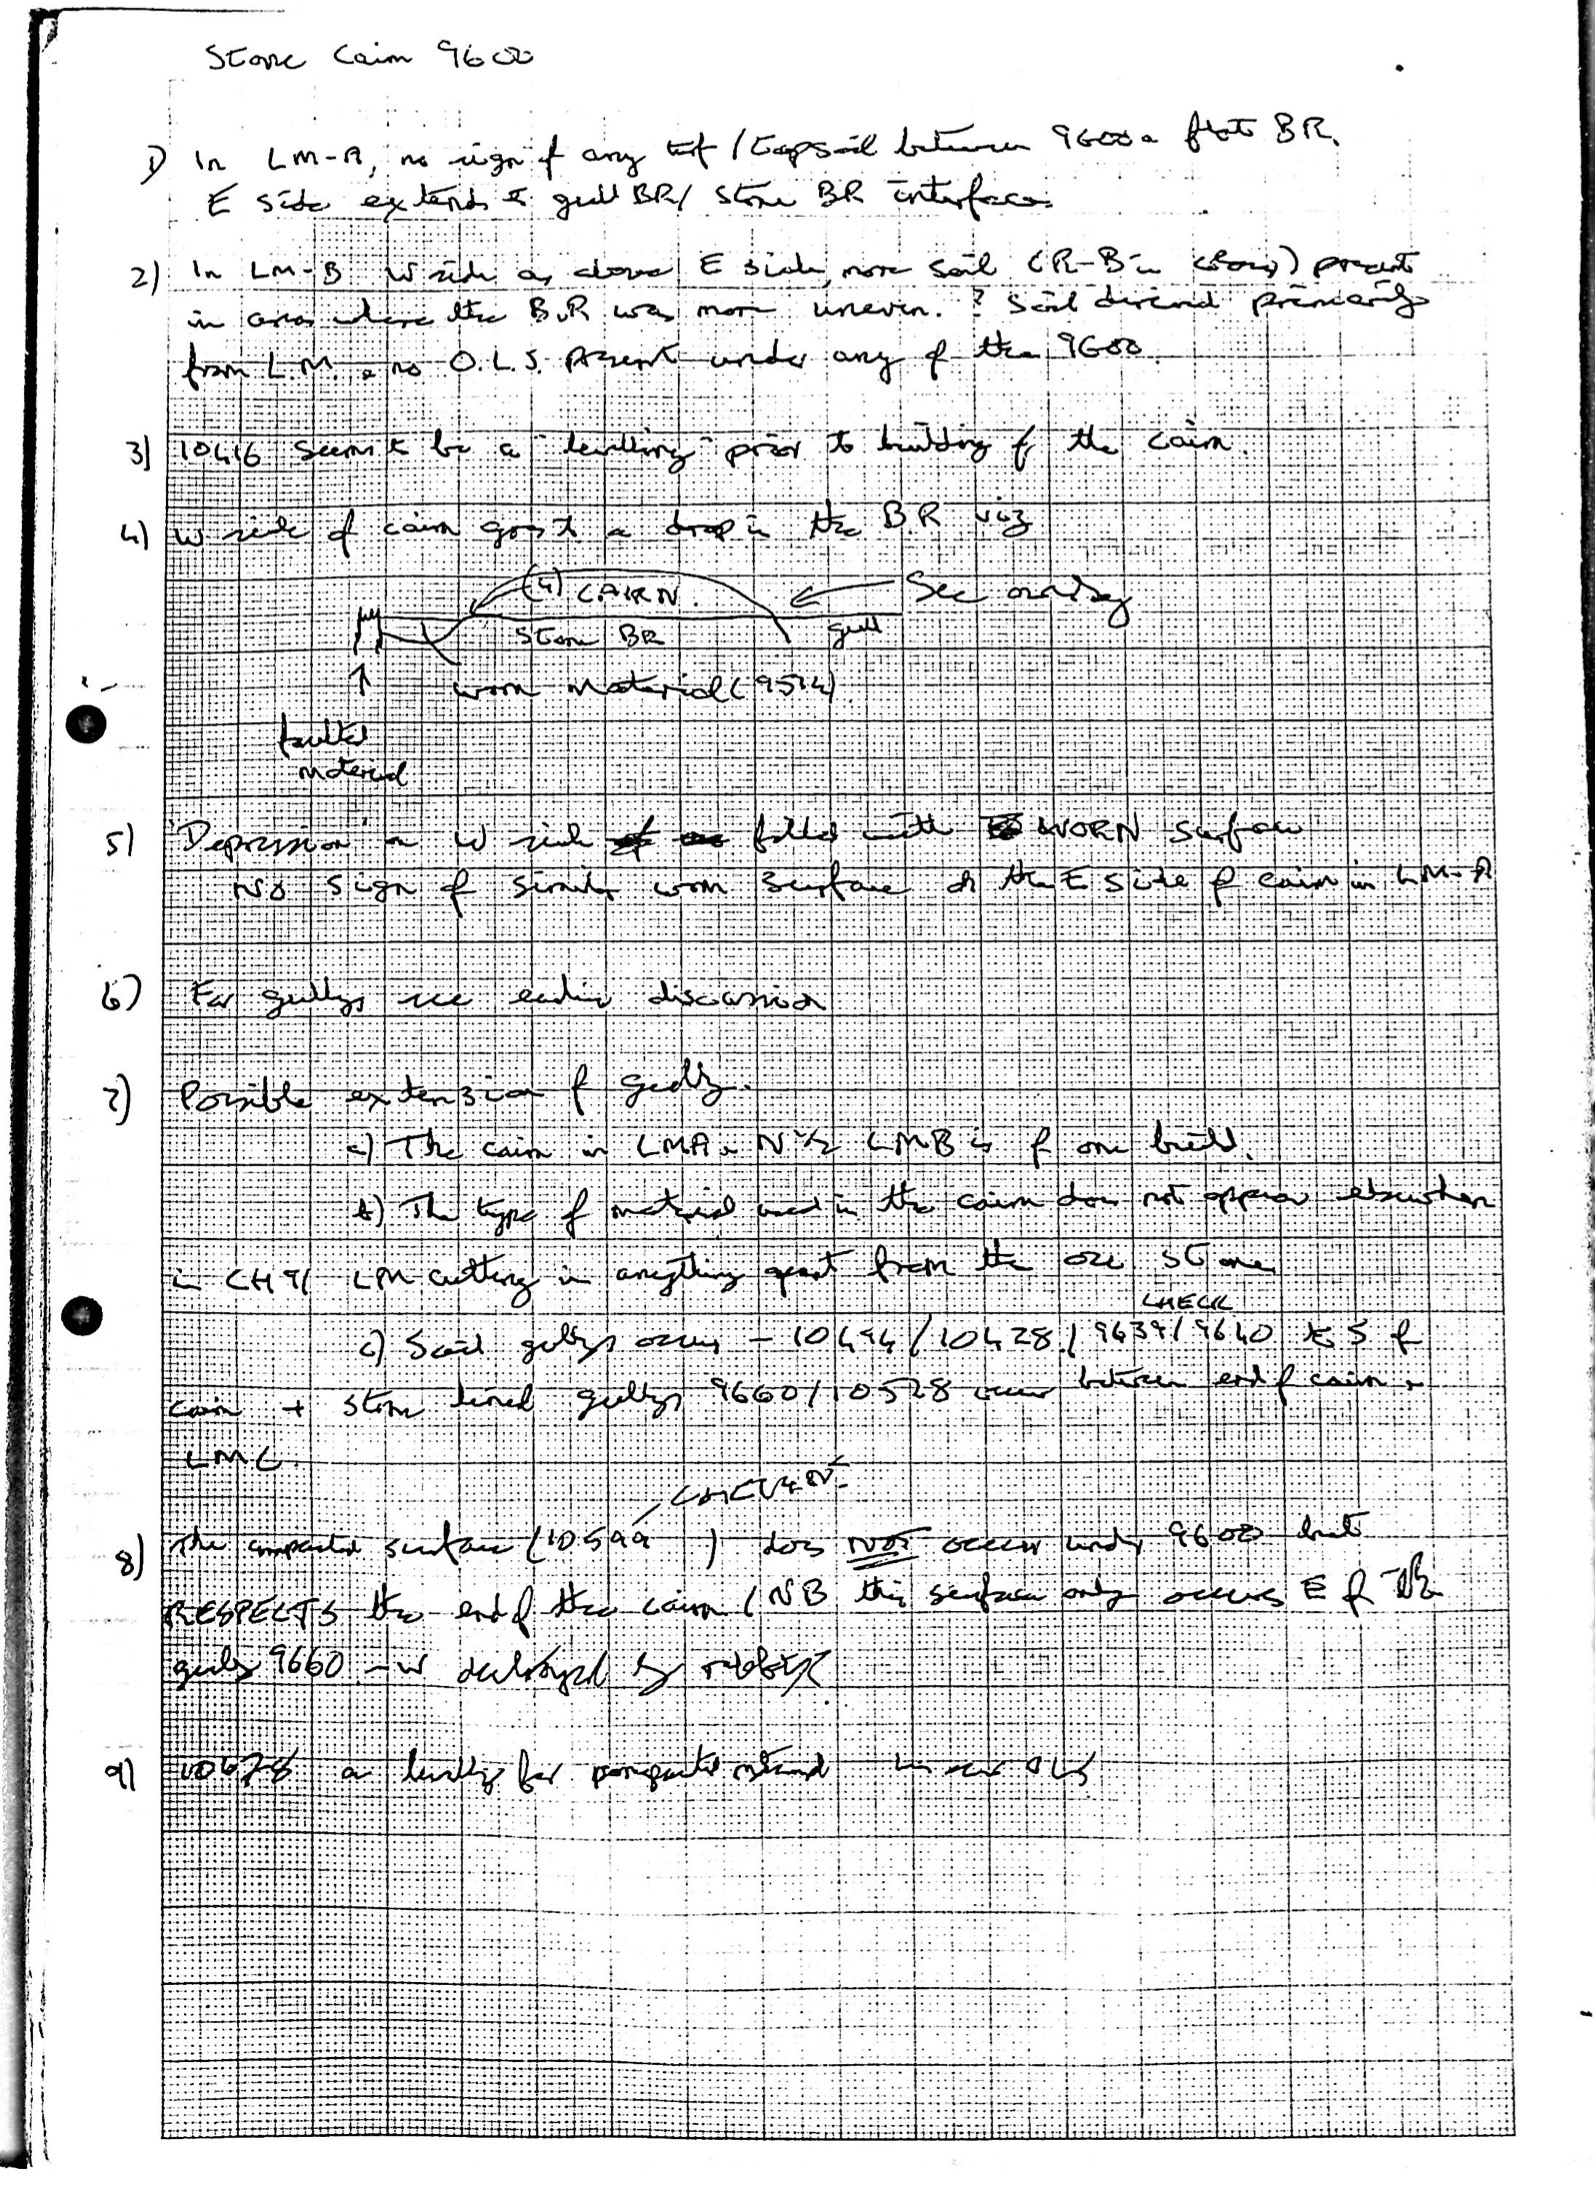 Stone Cairn 9600
1) In LM-A, no sign of any turf / topsoil between 9600 & flat BR.
E side extends to gull BR/ stone BR interface.
2) In LM-B W side as above E side, more soil (R-B in colour) present
in areas where the B.R was more uneven. ? Soil derived primarily
from L.M. & no O.L.S. present under any of the 9600.
3) 10416 seems to be a "levelling" prior to building of the cairn.
4) W side of cairn goes to a drop in the BR viz
(4) CAIRN. Sec ondary
Stone BR gull
worn material (9514)
faulted
material
5) 'Depression' on W side filled with WORN surface
No sign of similar worn surface on the E side of cairn in LM-A
6) For gullys see earlier discussion
7) Possible extension of gully.
a) The cairn in LMA & N 1/2 LMB is of one build.
b) The type of material used in the cairn does not appear elsewhere
in CH 91 LM cutting in anything apart from the odd stone
CHECK
c) Soil gullys occur - 10494 / 10428 / 9639 / 9640 to S of
cairn + stone lined gullys 9660/10528 occur between end of cairn &
LMC.
CHECK No
8) The compacted surface (10599 ) does NOT occur under 9600 but
RESPECTS the end of the cairn (NB this surface only occurs E of the
gully 9660 - W destroyed by
9) 10678 a levelling for compacted material